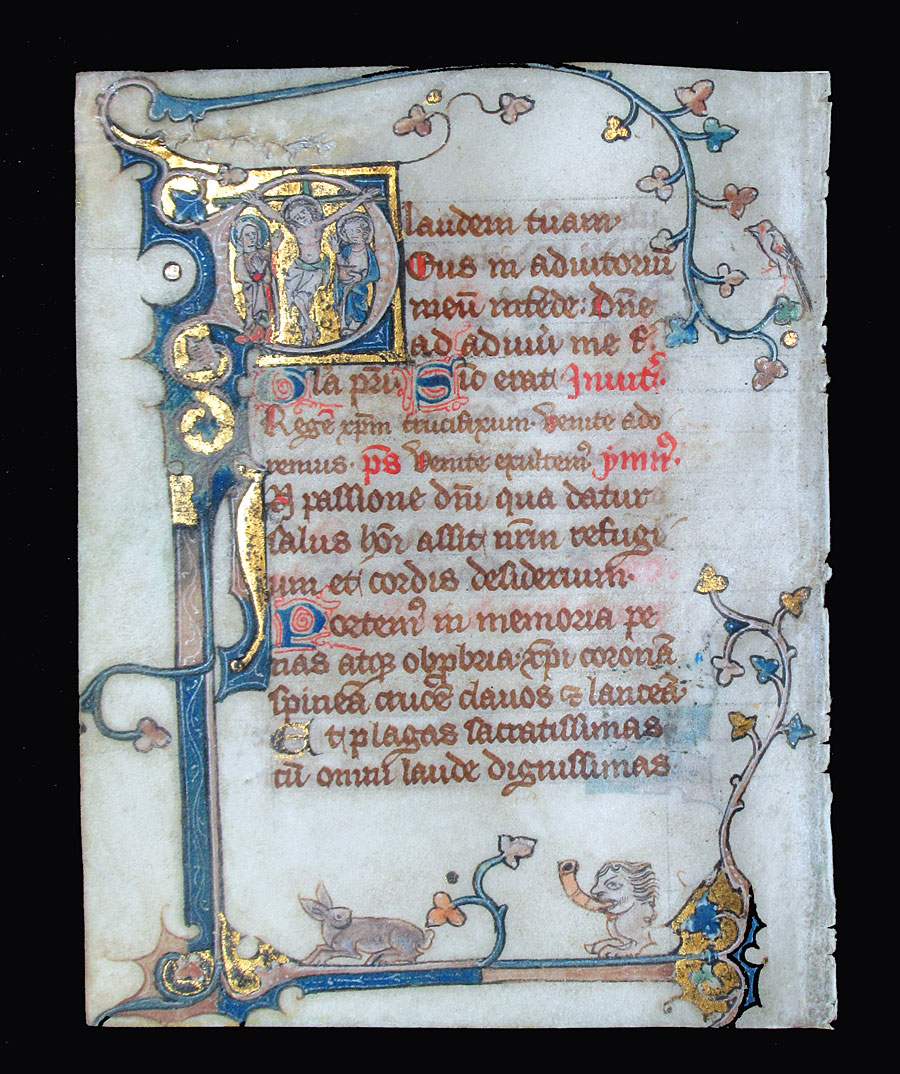 laudem tuam
Deus in adiutoriū
meū intēde: Dn̄e
ad adiuuā me f.
Gla pr̄i Sic erat Inuit'.
Regē xp̄m crucifixum venite ado
remus. ps Venite exultem' ymn'.
In passione dn̄i qua datur
salus ho͞i assit nr̄m refugi
um et cordis desiderium
Portem' in memoria pe
nas atqꝫ obꝓbria: xp̄i coronā
spineā crucē clauos ⁊ lanceā
Et plagas sacratissimas
cū omni laude dignissimas